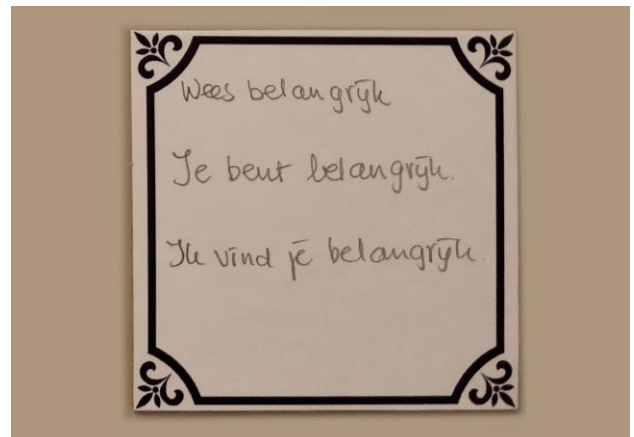 Wees belangrijk
Je bent belangrijk.
Ik vind je belangrijk.